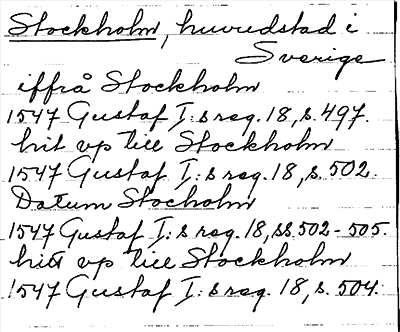 Stockholm, huvudstad i
Sverige
iffrå Stockholm
1547 Gustaf I:s reg. 18, s. 497.
hit vp till Stockholm
1547 Gustaf I:s reg. 18, s. 502.
Datum Stocholm
1547 Gustaf I:s reg. 18, ss. 502-505.
hitt vp till Stockholm
1547 Gustaf I:s reg. 18, s. 504.